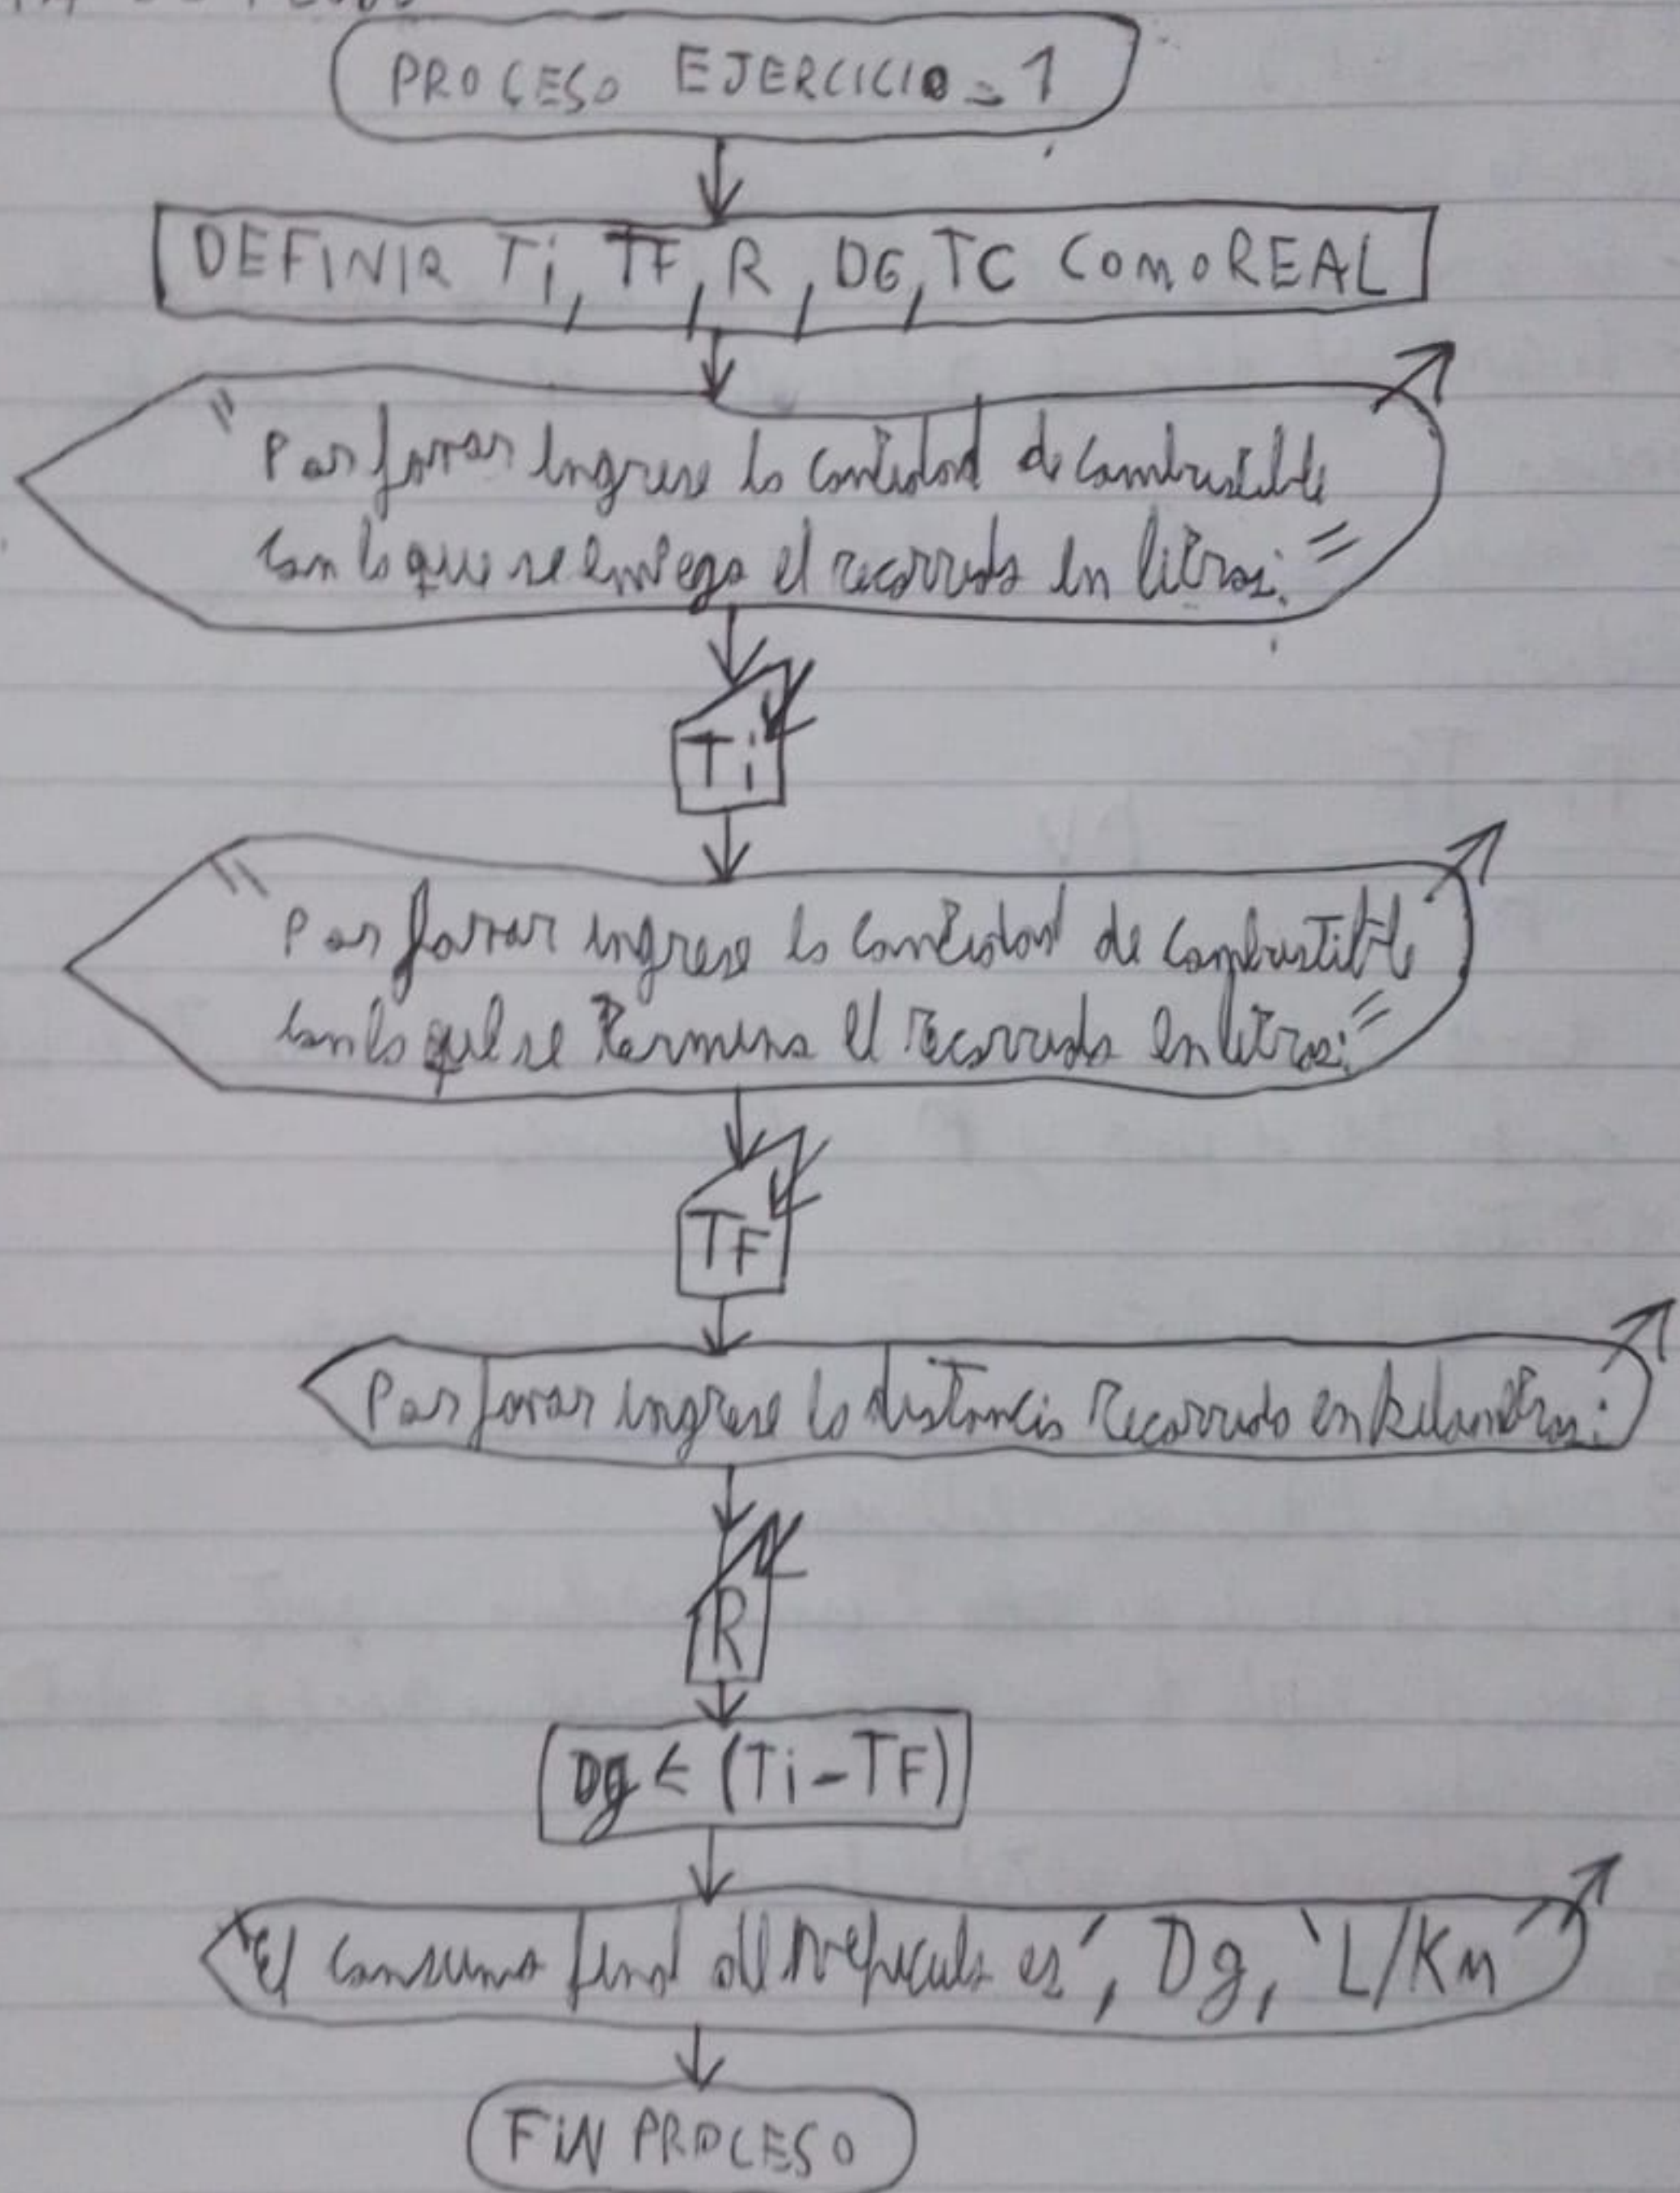 PROCESO EJERCICIO_1
DEFINIR Ti, TF, R, DG, TC Como REAL
"Por favor Ingrese la cantidad de combustible
con la que se empeza el recorrido en litros:"
Ti
"Por favor ingrese la cantidad de combustible
con la que se termina el recorrido en litros:"
TF
Por favor ingrese la distancia recorrido en kilometros:
R
Dg ← (Ti-TF)
"El consumo final del vehiculo es", Dg, "L/Km"
FiN PROCESO